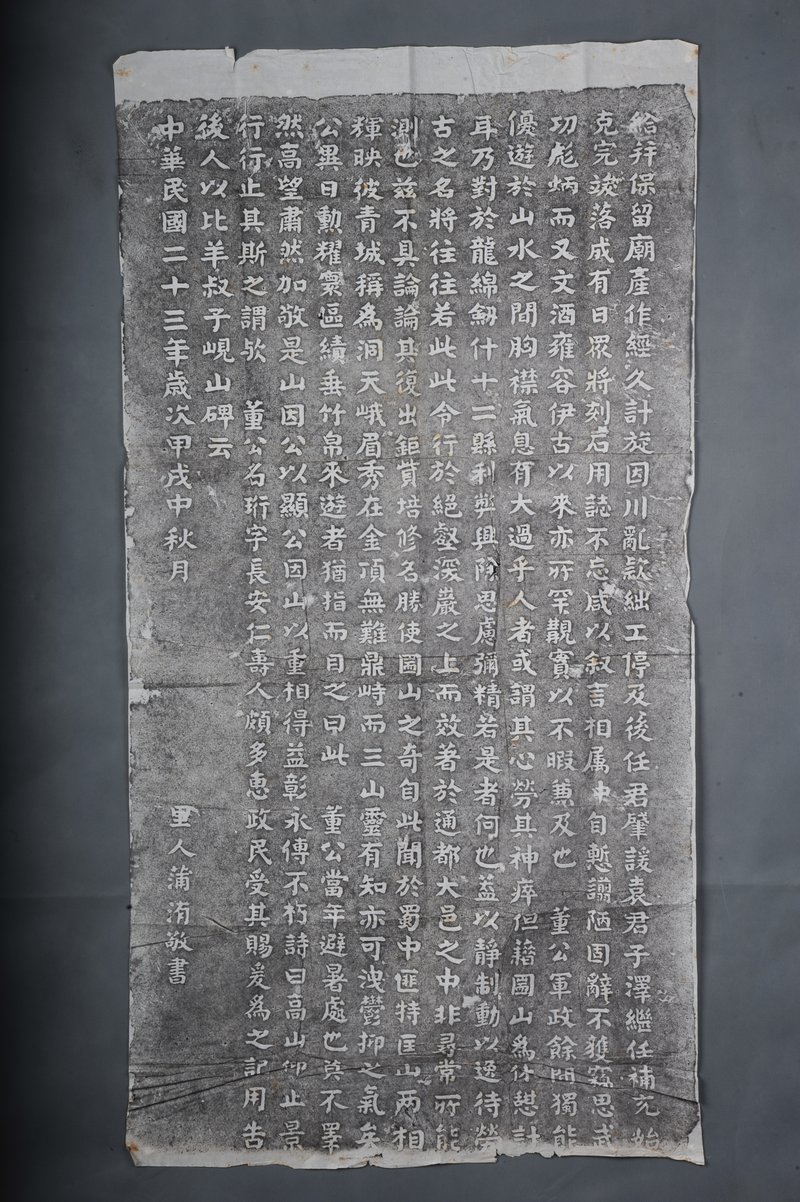 給符保留廟產作經久計旋因川亂款絀工停及後任君肇諼袁君子澤繼任補充始
克完竣落成有日眾將刻石用誌不忘咸以叙言相属中自慙謭陋固辭不獲竊思武
功彪炳而又文酒雍容伊古以來亦所罕覯實以不暇兼及也　董公軍政餘閒獨能
優遊於山水之間胸襟氣息有大過乎人者或謂其心勞其神瘁但藉圌山為休憇計
耳乃對於龍綿劒什十二縣利弊興除思慮彌精若是者何也蓋以靜制動以逸待勞
古之名將往往若此此令行於絕壑深巖之上而效著於通都大邑之中非尋常所能
測也兹不具論論其復出鉅貲培修名勝使圌山之奇自此聞於蜀中匪特匡山两相
輝映彼青城稱為洞天峨眉秀在金頂無難鼎峙而三山靈有知亦可洩鬱抑之氣矣
公異日勳耀寰區績垂竹帛來遊者猶指而目之曰此　董公當年避暑處也莫不睪
然高望肅然加敬是山因公以顯公因山以重相得益彰永傳不朽詩曰高山仰止景
行行止其斯之謂歟　董公名珩字長安仁壽人頗多惠政民受其賜爰為之記用告
後人以比羊叔子峴山碑云
中華民國二十三年歲次甲戌中秋月　里人蒲洧敬書